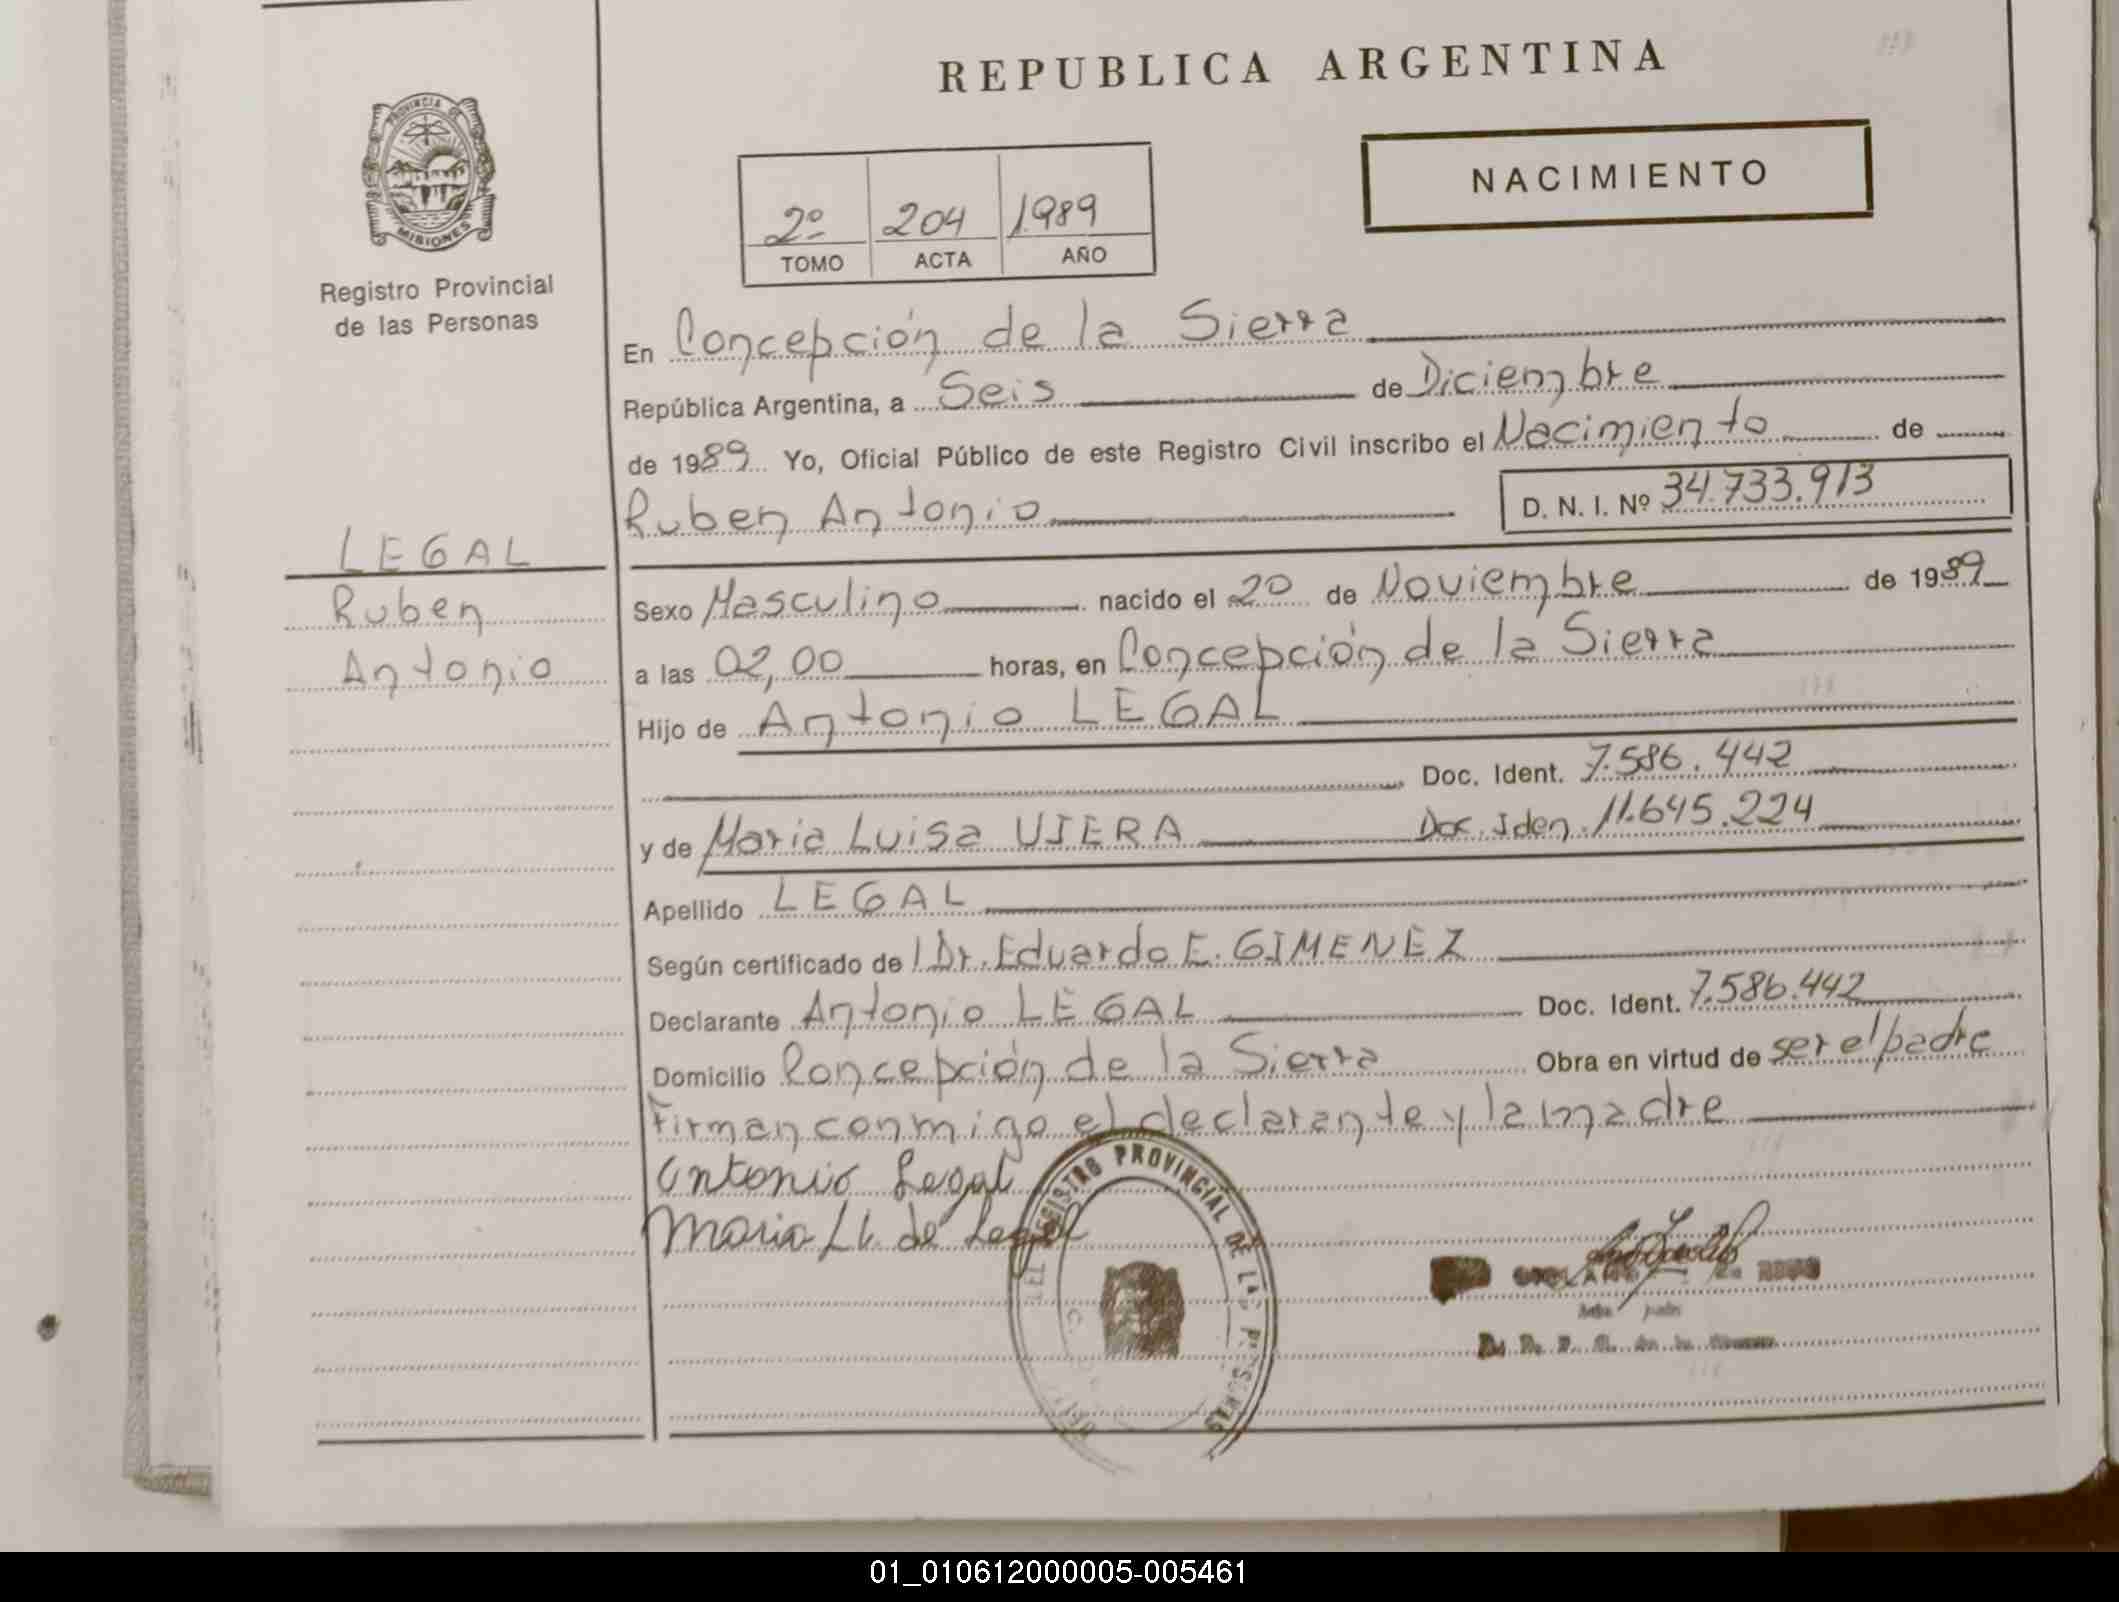 REPUBLICA ARGENTINA
PROVINCIA DE
MISIONES
Registro Provincial
de las Personas
NACIMIENTO
2º 204 1.989
TOMO ACTA AÑO
En Concepción de la Sierra
República Argentina, a Seis de Diciembre
de 1989 Yo, Oficial Público de este Registro Civil inscribo el Nacimiento de
Ruben Antonio D. N. I. Nº 34.733.913
LEGAL
Ruben
Antonio
Sexo Masculino nacido el 20 de Noviembre de 1989
a las 02,00 horas, en Concepción de la Sierra
Hijo de Antonio LEGAL
Doc. Ident. 7.586.442
y de Maria Luisa VIERA Doc. Iden. 11.645.224
Apellido LEGAL
Según certificado del Dr. Eduardo E. GIMENEZ
Declarante Antonio LEGAL Doc. Ident. 7.586.442
Domicilio Concepción de la Sierra Obra en virtud de ser el padre
Firman conmigo el declarante y la madre
Antonio Legal
Maria L. de Legal
REGISTRO PROVINCIAL DE LAS PERSONAS
01_010612000005-005461